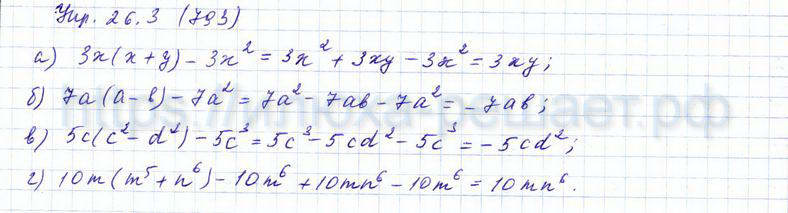 Упр. 26.3 (793)
а) 3x(x+y) - 3x² = 3x² + 3xy - 3x² = 3xy;
б) 7a(a-b) - 7a² = 7a² - 7ab - 7a² = -7ab;
в) 5c(c²-d²) - 5c³ = 5c³ - 5cd² - 5c³ = -5cd²;
г) 10m(m⁵+n⁶) - 10m⁶ + 10mn⁶ - 10m⁶ = 10mn⁶.